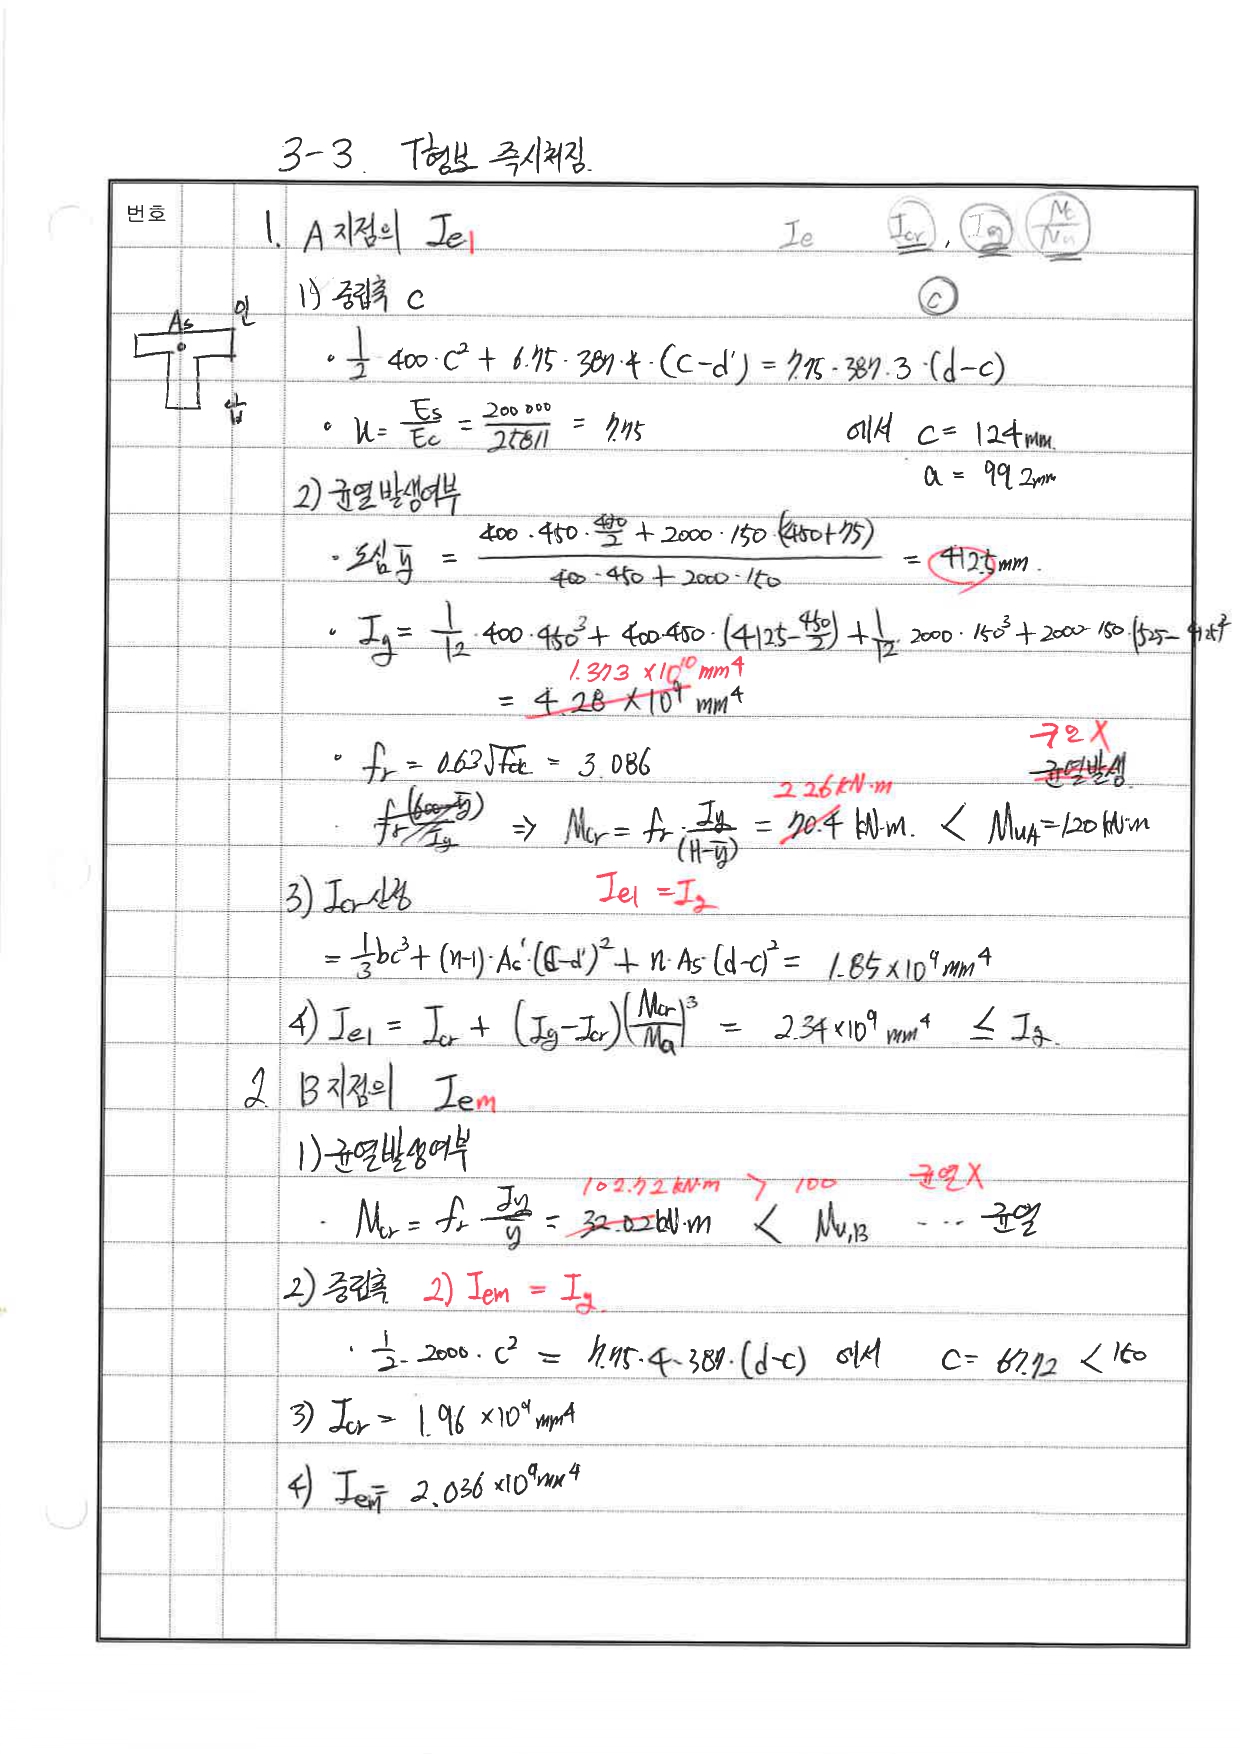 3-3. T형보 즉시처짐.
번호
1. A 지점의 Ie1 Ie Icr, Ig
1) 중립축 c ⓒ
As 인
압
· 1/2 400·c² + 6.75·387·4·(c-d') = 7.75·387·3·(d-c)
· n = Es/Ec = 200000/25811 = 7.75 에서 c = 124mm.
a = 99.2mm
2) 균열발생여부
· 도심 ȳ = (400·450·450/2 + 2000·150·(450+75)) / (400·450 + 2000·150) = 412.5mm.
· Ig = 1/12·400·450³ + 400·450·(412.5-450/2) + 1/12·2000·150³ + 2000·150·(525-412.5)²
1.373 ×10¹⁰ mm⁴
= 4.28 ×10⁹ mm⁴
균열 X
· fr = 0.63√fck = 3.086 균열발생
226 kN·m
· fr (600-ȳ)/Ig ⇒ Mcr = fr·Ig/(H-ȳ) = 70.4 kN·m. < MuA = 120 kN·m
3) Icr 산정 Ie1 = Ig
= 1/3bc³ + (n-1)·As'·(c-d')² + n·As·(d-c)² = 1.85×10⁹ mm⁴
4) Ie1 = Icr + (Ig-Icr)(Mcr/Ma)³ = 2.34×10⁹ mm⁴ ≤ Ig.
2. B 지점의 Iem
1) 균열발생여부
102.72 kN·m > 100 균열X
· Mcr = fr Ig/y = 32.02 kN·m < Mu,B ... 균열
2) 중립축 2) Iem = Ig.
· 1/2·2000·c² = 7.75·4·387·(d-c) 에서 c = 67.72 < 150
3) Icr = 1.96 ×10⁹ mm⁴
4) Iem = 2.036 ×10⁹ mm⁴